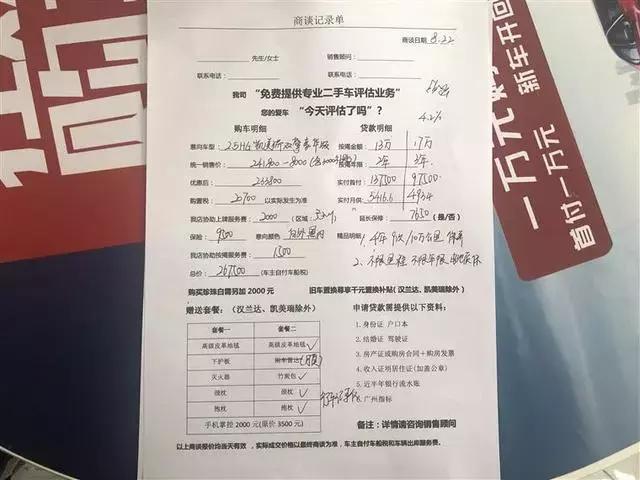 商谈记录单
商谈日期 8.22
先生/女士 销售顾问:
联系电话: 联系电话:
我司 “免费提供专业二手车评估业务”
您的爱车 “今天评估了吗”?
4.2%
购车明细 贷款明细
意向车型: 按揭金额: 13万 17万
统一销售价: 241800-8000 按揭年限: 2年 3年
优惠后: 233800 实付首付: 137500 97500
购置税: 20700 以实际发生为准 实付月供: 5416.6 4934
我店协助上牌服务费: 2000 (区域: 延长保修: 7650 (是/否)
保险: 9500 意向颜色: 白外黑内 精品明细: 1、4年 10万公里
我店协助按揭服务费: 1500 2、不限里程 不限年限
总价: 267500 (车主自付车船税)
购买珍珠白需另加 2000 元 旧车置换尊享千元置换补贴(汉兰达、凯美瑞除外)
赠送套餐:(汉兰达、凯美瑞除外) 申请贷款需提供以下资料:
套餐一 套餐二
高级皮革地毯 高级皮革地毯
下护板 倒车雷达
灭火器 竹炭包
颈枕 颈枕
抱枕 抱枕
手机掌控 2000 元(原价 3500 元)
1. 身份证 户口本
2. 结婚证 驾驶证
3. 房产证或购房合同+购房发票
4. 收入证明居住证(加盖公章)
5. 近半年银行流水账
6. 广州指标
备注:详情请咨询销售顾问
以上商谈报价均当天有效,实际成交价格以最终商谈为准,车主自付车船税和车辆出库服务费。
一万元购
新车开回
首付一万元